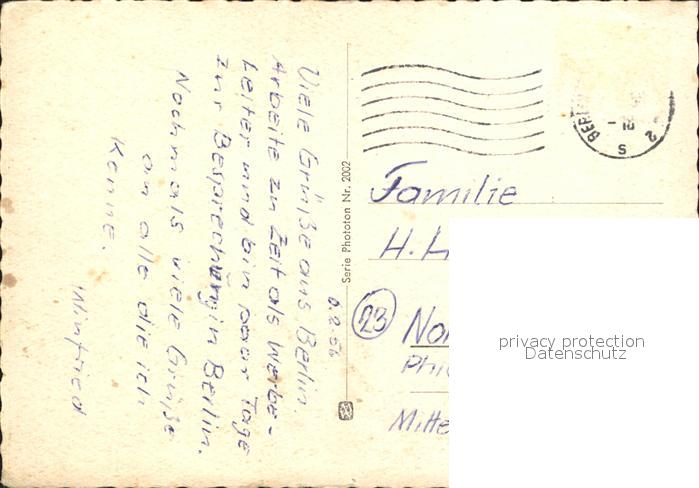 6.2.56
Viele Grüße aus Berlin.
Arbeite zu Zeit als Werbe-
Leiter und bin paar Tage
zur Besprechung in Berlin.
Nochmals viele Grüße
an alle die ich
Kenne.
Winfried
Serie Phototon Nr. 2002
BERL
2
S
Familie
H. L
23
No
Phi
Mitte
privacy protection
Datenschutz